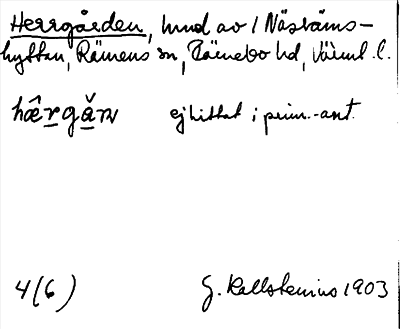 Herrgården, hmd av 1 Nästäms-
hyttan, Rämens sn, Färnebo hd, Värml. l.
hærgån ej hittat i prim.-ant.
4(6) G. Kallstenius 1903